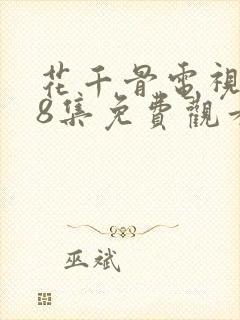 花千骨電視
8集免費觀看
巫斌